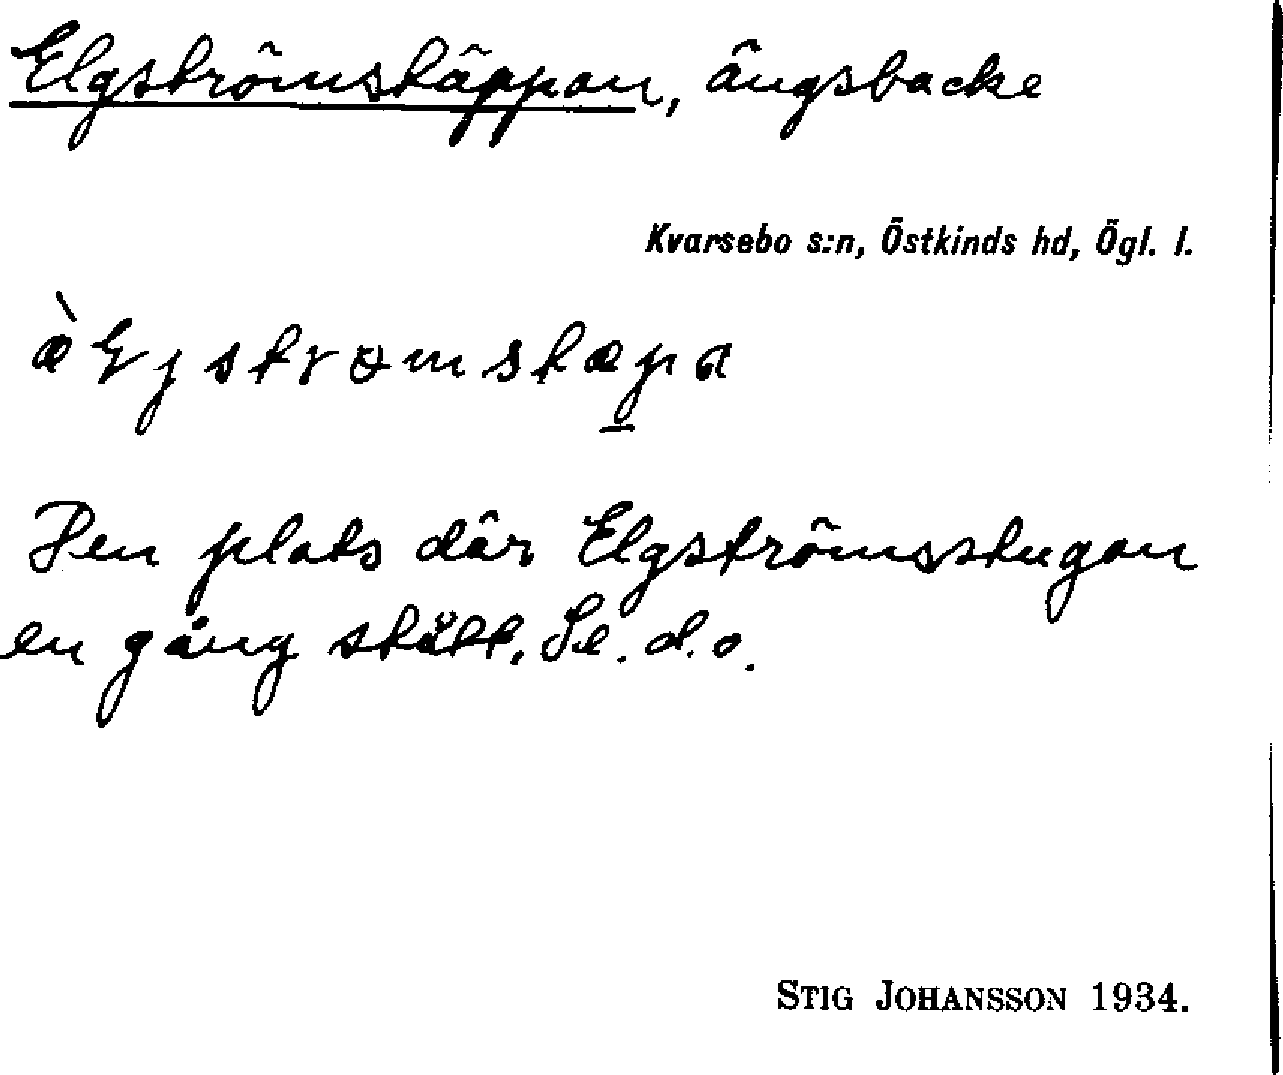 Elgströmstäppan, ängsbacke
Kvarsebo s:n, Östkinds hd, Ögl. l.
Den plats där Elgströmsstugan
en gång stått. Se. d.o.
STIG JOHANSSON 1934.